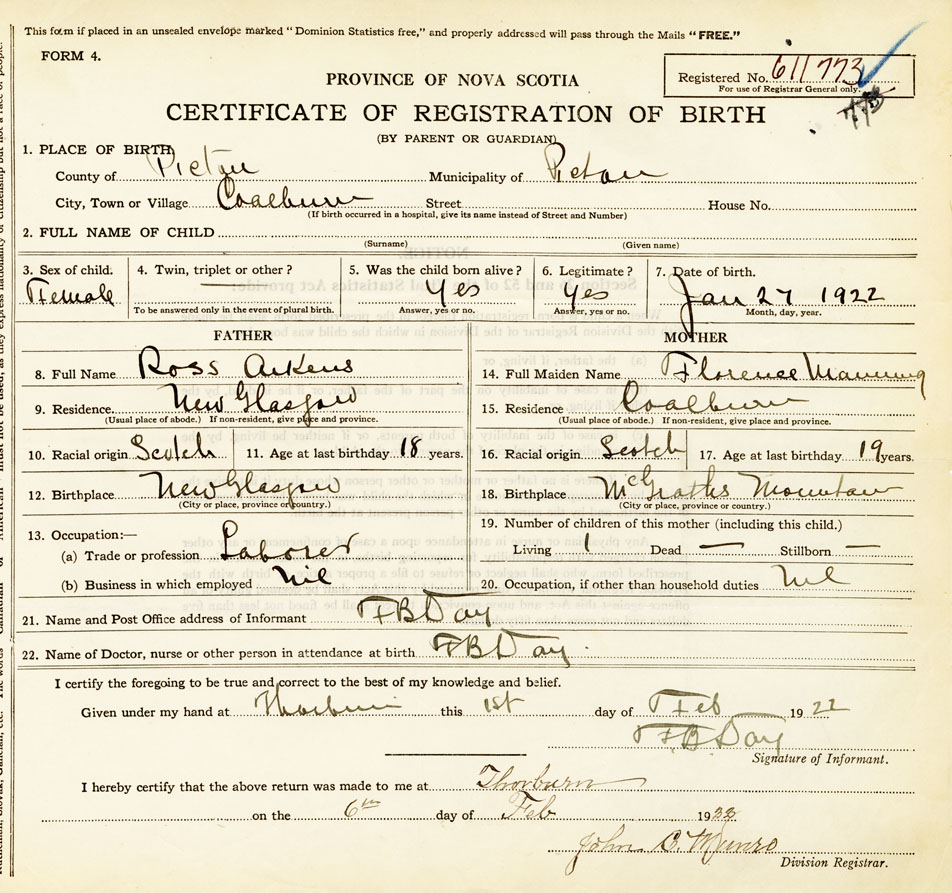 This form if placed in an unsealed envelope marked "Dominion Statistics free," and properly addressed will pass through the Mails "FREE."
FORM 4.
Registered No. 611773
For use of Registrar General only.
773
PROVINCE OF NOVA SCOTIA
CERTIFICATE OF REGISTRATION OF BIRTH
(BY PARENT OR GUARDIAN)
1. PLACE OF BIRTH
County of Pictou Municipality of Pictou
City, Town or Village Coalburn Street House No.
(If birth occurred in a hospital, give its name instead of Street and Number)
2. FULL NAME OF CHILD
(Surname) (Given name)
3. Sex of child. 4. Twin, triplet or other? 5. Was the child born alive? 6. Legitimate? 7. Date of birth.
Female — Yes Yes Jan 27 1922
To be answered only in the event of plural birth. Answer, yes or no. Answer, yes or no. Month, day, year.
FATHER MOTHER
8. Full Name Ross Aikens 14. Full Maiden Name Florence Manning
9. Residence New Glasgow 15. Residence Coalburn
(Usual place of abode.) If non-resident, give place and province. (Usual place of abode.) If non-resident, give place and province.
10. Racial origin Scotch 11. Age at last birthday 18 years. 16. Racial origin Scotch 17. Age at last birthday 19 years.
12. Birthplace New Glasgow 18. Birthplace McGraths Mountain
(City or place, province or country.) (City or place, province or country.)
13. Occupation:— 19. Number of children of this mother (including this child.)
(a) Trade or profession Laborer Living 1 Dead — Stillborn —
(b) Business in which employed Nil 20. Occupation, if other than household duties Nil
21. Name and Post Office address of Informant F B Day
22. Name of Doctor, nurse or other person in attendance at birth F B Day
I certify the foregoing to be true and correct to the best of my knowledge and belief.
Given under my hand at Thorburn this 1st day of Feb 1922
F B Day
Signature of Informant.
I hereby certify that the above return was made to me at Thorburn
on the 6th day of Feb 1922
John C. Munro
Division Registrar.